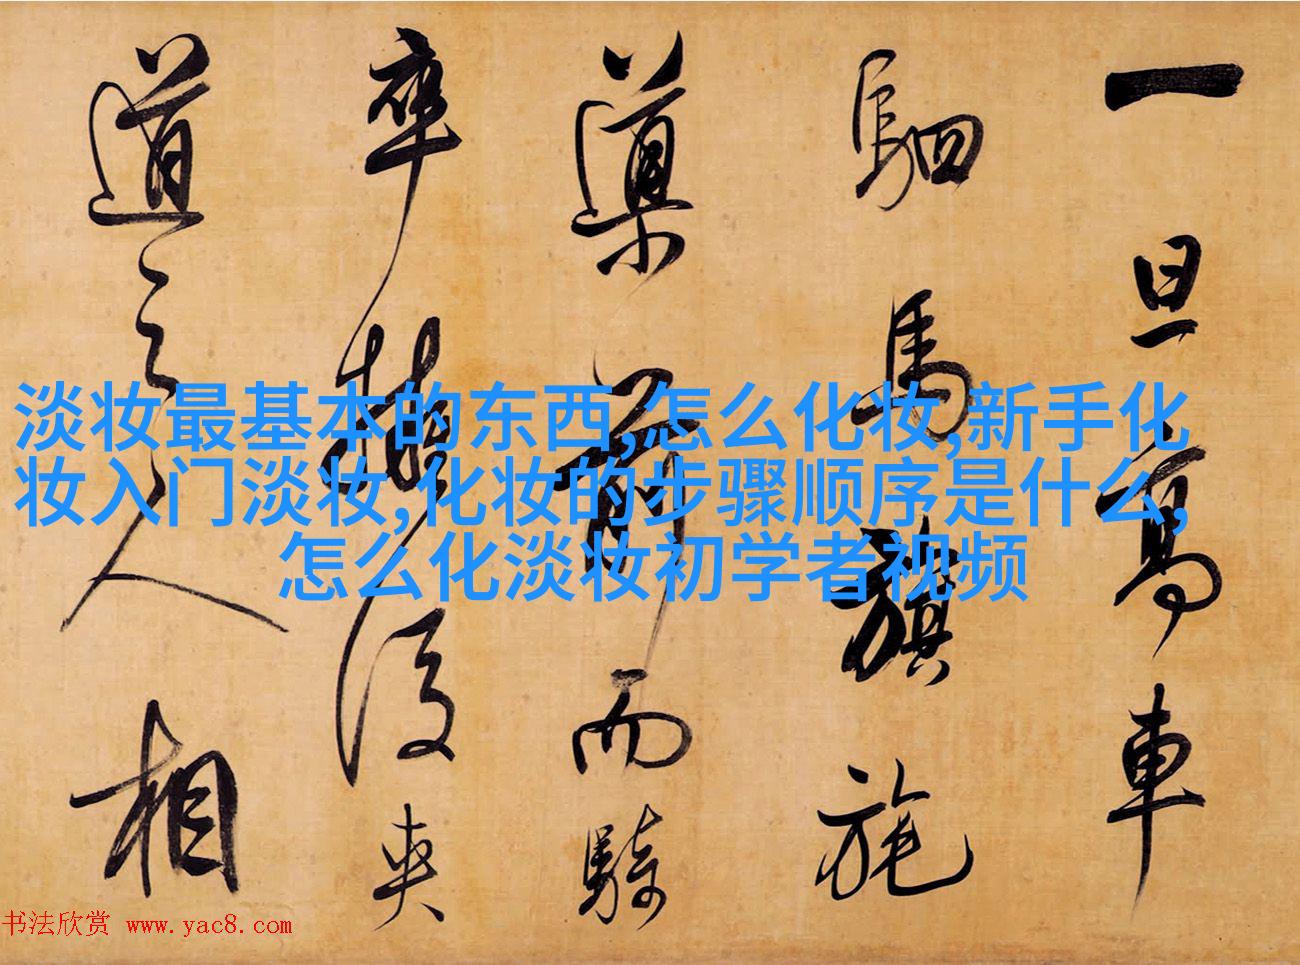 一旦高車
駟馬旗旄
導前而騎
卒擁後夾
道之人相
淡妆最基本的东西,怎么化妆,新手化
妆入门淡妆,化妆的步骤顺序是什么,
怎么化淡妆初学者视频
书法欣赏 www.yac8.com